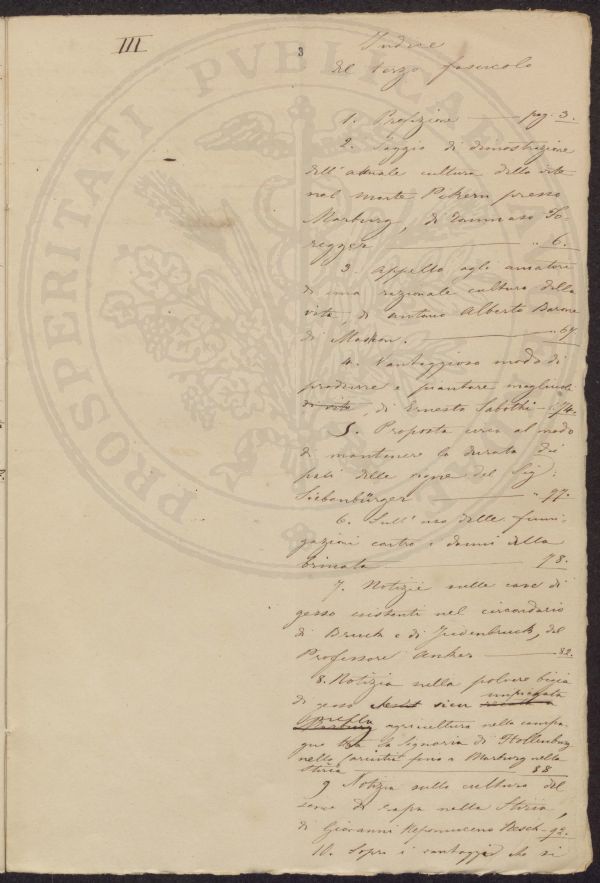 III
3
Indice
del terzo fascicolo
1. Prefazione — pag. 3.
2. Saggio di dimostrazione
dell'attuale cultura della vite
nel monte Pikern presso
Marburg, di Tommaso
— „ 6.
3. Appello agli amatori
di una razionale cultura della
vite, di Antonio Alberto Barone
di Maskon. — „ 67
4. Vantaggioso modo di
produrre e piantare magliuoli
di vite, di Ernesto Sabothi — „ 74.
5. Proposta circa al modo
di mantenere la durata dei
pali delle vigne del Sig:
Siebenbürger — „ 77.
6. Sull'uso delle fumi-
gazioni contro i danni della
brinata — 78.
7. Notizie sulle cave di
gesso esistenti nel circondario
di Bruck e di Judenbruck, del
Professore Anker — 82.
8. Notizia sulla polvere bigia
di gesso impiegata
nella
Marburg agricoltura nella campa-
gne tra la Signoria di Hollenburg
nella Carintia fino a Marburg nella
Stiria — 88
9 Notizia sulla cultura del
seme di rapa nella Stiria,
di Giovanni Nepomuceno — 92.
10. Sopra i vantaggi che si
PROSPERITATI PUBLICAE